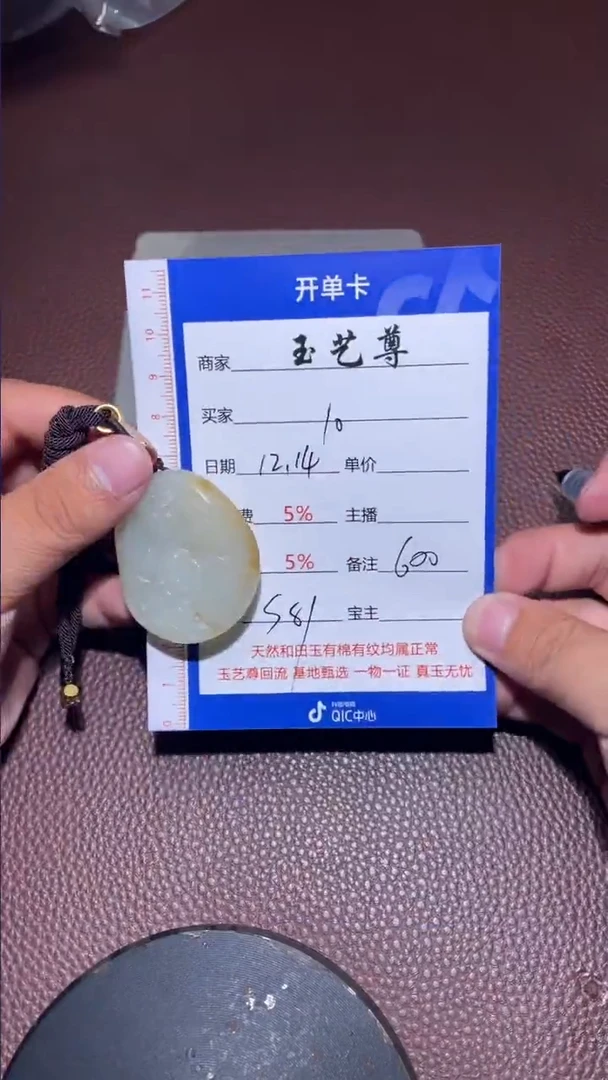 开单卡
商家 玉艺尊
买家 10
日期 12.14 单价
费 5% 主播
5% 备注 600
581 宝主
天然和田玉有棉有纹均属正常
玉艺尊回流 基地甄选 一物一证 真玉无忧
QIC中心
11
10
9
8
1
0